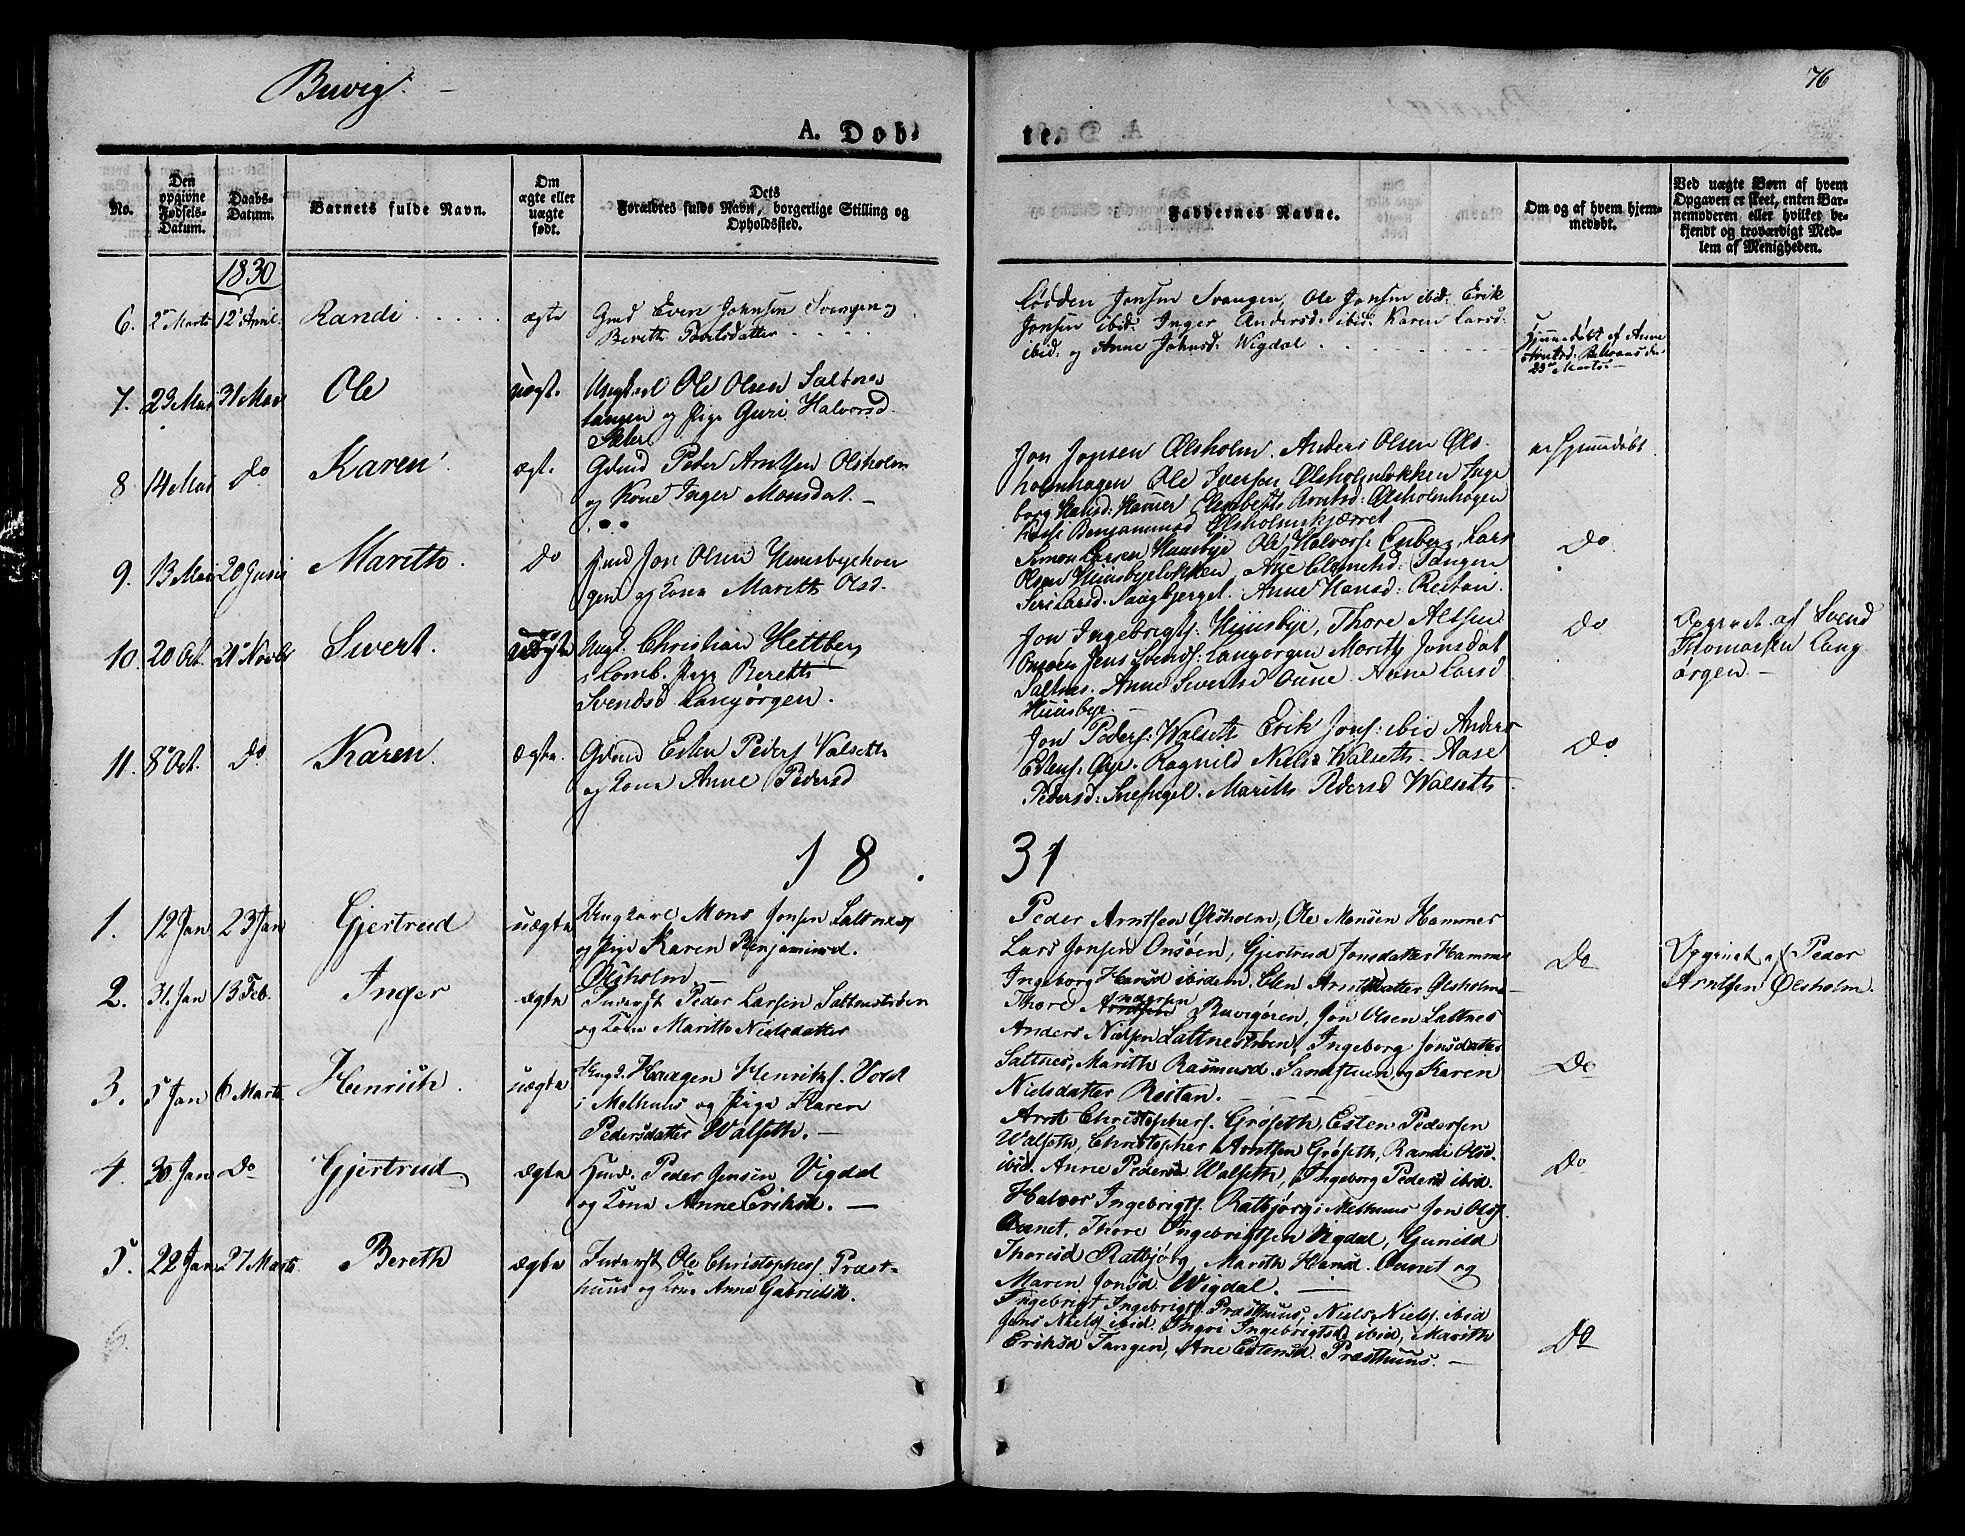 Buvig.
76
A. Døb-
te.
No.
Den opgivne Fødsels-Datum.
Daabs-Datum.
Barnets fulde Navn.
Om ægte eller uægte født.
Dets Forældres fulde Navn, borgerlige Stilling og Opholdssted.
Faddernes Navne.
Om og af hvem hjemmedøbt.
Ved uægte Børn af hvem Opgaven er skeet, enten Barnemoderen eller hvilket bekjendt og troværdigt Medlem af Menigheden.
1830
6. 2den Marts 12te April. Randi ægte
Gmd Even Johnsen Svingen og
Bereth Povelsdatter
Jonsen Svangen, Ole Jonsen ibid: Erik
Jonsen ibid: Inger Andersd: ibid: Karen Larsd:
ibid: og Anne Johnsd: Wigdal.
Hjemmedøbt af Anne
Arntsd: den
23de Marts.
7. 29 Mai 31 Mai Ole uægt.
Ungkarl Ole Olsen Saltnes
tangen og Pige Guri Halvorsd.
8 14 Mai do Karen ægt.
Gdmd Peder Arntsen Ølsholm
og Kone Inger Monsdat. —
Jon Jonsen Ølsholm. Anders Olsen Øls-
holmhagen Ole Iversen Ølsholmløkken Inge
borg Hansd: Hamer Elenbeth Arntsd: Ølsholmhagen
Benjaminsd Ølsholmskjærret
er Hjemmedøbt
9. 13 Mai 20 Junii Marith. do
Hmd Jon Olsen Huusbyehau
gen og Kone Marith Olsd.
Simon Larsen Huusbye Ole Halvors. Enberg, Lars
Olsen Huusbyeløkken, Ane Clemetsd: Tangen
Siri Larsd. Saugbjerget. Anne Hansd: Reitan.
do
10. 20 Oct. 21de Novbr Sivert. uægte
Ungk. Christian Hettberg
Pige Bereth
Svendsd Langørgen.
Jon Ingebrigts. Huusbye, Thore Altsen
Onsøen Jens Svends: Langørgen Marith Jonsdat
Saltnes. Anne Sivertsd Oune. Anne Larsd
Huusbye. —
do
Opgivet af Svend
Thomassen Lang
ørgen —
11. 8de Oct. do Karen. ægte.
Gdmd Esten Peders. Valseth
og Kone Anne Pedersd
Jon Peders: Walseth Erik Jons: ibid Anders
Estens. Øye. Ragnild Niels. Walseth. Aase
Pedersd: Snefugel. Marith Pedersd Walseth
do
18.
31
1. 12 Jan 23 Jan Gjertrud uægte
Ungkarl Mons Jonsen Saltnes
og Pige Karen Benjaminsd.
Ølsholm. —
Peder Arntsen Ølsholm, Ole Monsen Hammer
Lars Jonsen Onsøen, Gjertrud Jonsdatter Hammer
Ingeborg Hansd ibidem. Elen Arntsdatter Ølsholm —
Do
Opgivet af Peder
Arntsen Ølsholm.
2. 31. Jan 13 Feb. Inger ægte
Inderst Peder Larsen Saltnestrøen
og Kone Marith Nielsdatter
Thore Andersen Buvigøren, Jon Olsen Saltnes
Anders Nielsen Saltnestrøen, Ingeborg Jonsdatter
Saltnes, Marith Rasmusd. Sandstuen, og Karen
Nielsdatter Reitan.
Do
3. 5 Jan 6 Marts Henrich uægte
Ungk. Haagen Henriks. Vold
i Melhuus og Pige Karen
Pedersdatter Walseth. —
Arnt Christophers. Grøseth, Esten Pedersen
Walseth, Christopher Arntsen Grøseth, Randi Olsd.
ibid. Anne Pedersd Walseth, Ingeborg Pedersd ibid.
Do
4. 30 Jan Do Gjertrud ægte
Hmd. Peder Jensen Vigdal
og Kone Anne Eriksd. —
Halvor Ingebrigts. Ratbjørg i Melhuus Jon Ols.
Ounet, Thore Ingebrigtsen Vigdal, Gunild
Thoresd Ratbjørg, Marith Hansd. Ounet og
Maren Jonsd. Wigdal. —
5. 22 Jan 27 Marts Bereth ægte
Inderst Ole Christophers. Præst-
huus og Kone Anne Gabrielsd.
Ingebrigt Ingebrigts. Præsthuus, Niels Niels. ibid
Jens Niels. ibid. Ingri Ingebrigtsd ibid, Marith
Eriksd Tangen, Ane Estensd. Præsthuus. —
Do